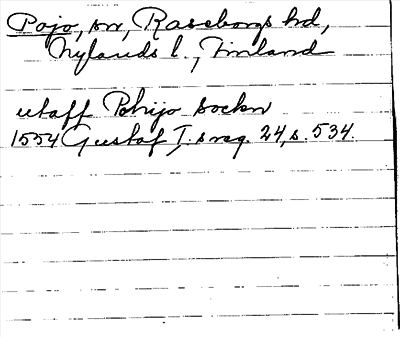 Pojo, sn, Raseborgs hd,
Nylands l., Finland
utaff Pohijo sockn
1554 Gustaf I:s reg. 24, s. 534